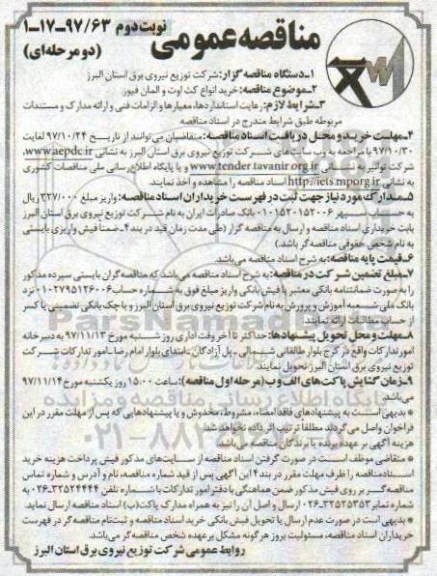 نوبت دوم ۹۷/۶۳-۱۷-۱
مناقصه عمومی
(دو مرحله‌ای)
۱-دستگاه مناقصه گزار: شرکت توزیع نیروی برق استان البرز
۲-موضوع مناقصه: خرید انواع کت اوت و المان فیوز
۳-شرایط لازم: رعایت استانداردها، معیارها و الزامات فنی و ارائه مدارک و مستندات
مربوطه طبق شرایط مندرج در اسناد مناقصه
۴-مهلت خرید و محل دریافت اسناد مناقصه: متقاضیان می‌توانند از تاریخ ۹۷/۱۰/۲۴ لغایت
۹۷/۱۰/۳۰ با مراجعه به وب سایت‌های شرکت توزیع نیروی برق استان البرز به نشانی www.aepdc.ir،
شرکت توانیر به نشانی www.tender.tavanir.org.ir و یا پایگاه اطلاع‌رسانی ملی مناقصات کشوری
به نشانی http://iets.mporg.ir اسناد مناقصه را مشاهده و اخذ نمایند.
۵-مدارک مورد نیاز جهت ثبت در فهرست خریداران اسناد مناقصه: واریز مبلغ ۳۲۷/۰۰۰ ریال
به حساب سپهر ۰۱۰۱۵۲۰۱۵۲۰۰۶ بانک صادرات ایران به نام شرکت توزیع نیروی برق استان البرز
بابت خریداری اسناد مناقصه و ارسال به مناقصه گزار (طی مدت زمان قید در بند ۴-ضمنا فیش واریزی بایستی
به نام شخص حقوقی مناقصه‌گر باشد.)
۶-قیمت پایه مناقصه: به شرح اسناد مناقصه می‌باشد.
۷-مبلغ تضمین شرکت در مناقصه: به شرح اسناد مناقصه می‌باشد، که مناقصه‌گران بایستی سپرده مذکور
را به صورت ضمانتنامه بانکی معتبر یا فیش بانکی واریز مبلغ فوق به شماره حساب ۰۱۰۲۷۹۵۱۲۶۰۰۶ نزد
بانک ملی شعبه آموزش و پرورش به نام شرکت توزیع نیروی برق استان البرز و یا چک بانکی تضمینی یا کسر
از حساب مطالبات ارائه نمایند.
۸-مهلت و محل تحویل پیشنهادها: حداکثر تا آخر وقت اداری روز شنبه مورخ ۹۷/۱۱/۱۳ به دبیرخانه
امور تدارکات واقع در کرج بلوار طالقانی شمالی-پل آزادگان-ابتدای بلوار امام رضا-امور تدارکات شرکت
توزیع نیروی برق استان البرز تحویل نمایند.
۹-زمان گشایش پاکت‌های الف و ب (مرحله اول مناقصه): ساعت ۱۵:۰۰ روز یکشنبه مورخ ۹۷/۱۱/۱۴
می‌باشد.
* بدیهی است به پیشنهادهای فاقد امضاء، مشروط، مخدوش و یا پیشنهادهایی که پس از مهلت مقرر در این
فراخوان واصل می‌گردند مطلقا ترتیب اثر داده نخواهد شد.
هزینه آگهی بر عهده برنده یا برندگان مناقصه می‌باشد.
* متقاضی موظف است در صورت گرفتن اسناد مناقصه از سایت‌های مذکور فیش پرداخت هزینه خرید
اسناد مناقصه را ظرف مهلت مقرر در بند ۴ این آگهی پس از قید شماره مناقصه، نام و آدرس و شماره تماس
مناقصه‌گر بر روی فیش مذکور ضمن هماهنگی با دفتر امور تدارکات با شماره تلفن ۳۲۵۲۴۴۴۴-۰۲۶ به
شماره نمابر ۳۲۵۲۵۳۵۳-۰۲۶ ارسال و اصل آن را نیز به همراه مدارک پاکت (ب) اسناد مناقصه ارسال نماید.
* بدیهی است در صورت عدم ارسال یا تحویل فیش بانکی خرید اسناد مناقصه و ثبت‌نام مناقصه‌گر در فهرست
خریداران اسناد مناقصه، مسئولیت بروز هرگونه مشکل بر عهده شخص مناقصه‌گر می‌باشد.
روابط عمومی شرکت توزیع نیروی برق استان البرز